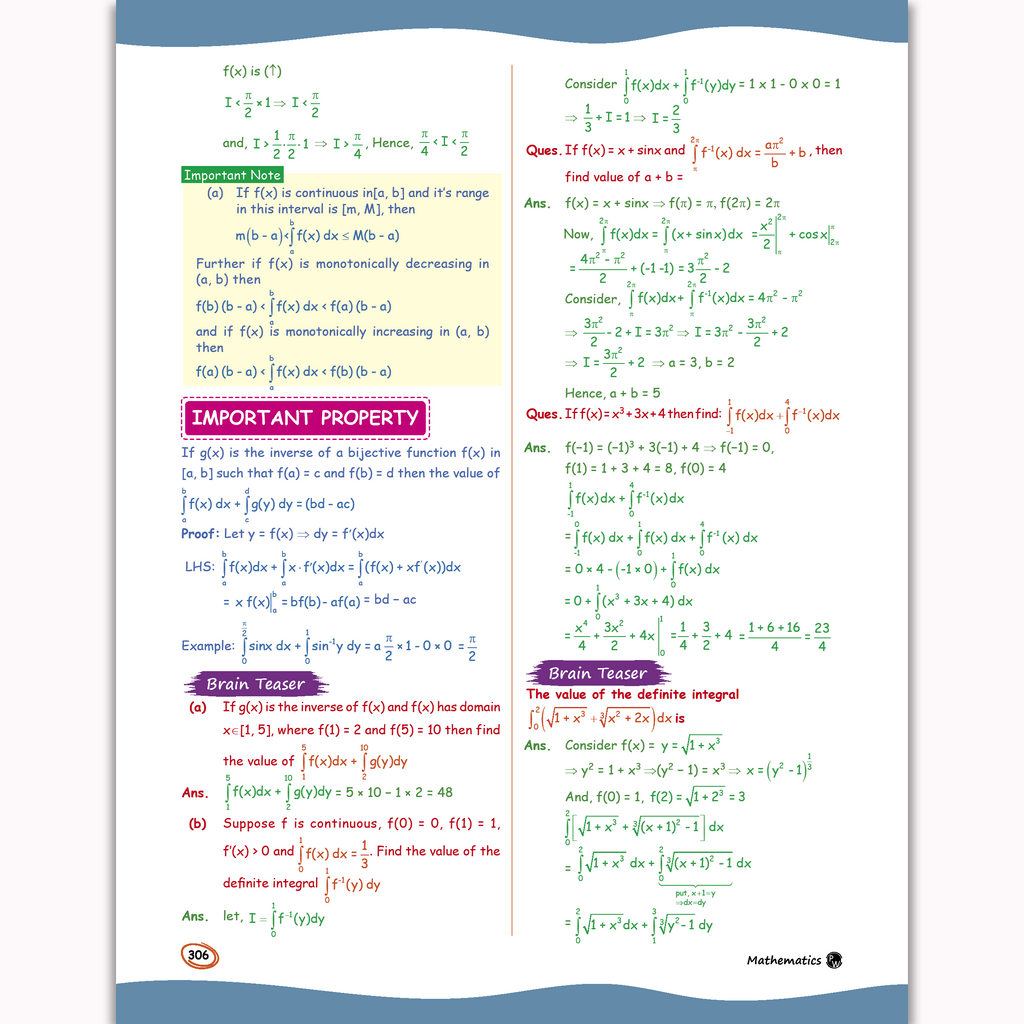 f(x) is (↑)
I < π/2 × 1 ⇒ I < π/2
and, I > 1/2 · π/2 · 1 ⇒ I > π/4, Hence, π/4 < I < π/2
Important Note
(a) If f(x) is continuous in[a, b] and it's range
in this interval is [m, M], then
m(b – a)<∫_a^b f(x) dx ≤ M(b – a)
Further if f(x) is monotonically decreasing in
(a, b) then
f(b) (b – a) < ∫_a^b f(x) dx < f(a) (b – a)
and if f(x) is monotonically increasing in (a, b)
then
f(a) (b – a) < ∫_a^b f(x) dx < f(b) (b – a)
IMPORTANT PROPERTY
If g(x) is the inverse of a bijective function f(x) in
[a, b] such that f(a) = c and f(b) = d then the value of
∫_a^b f(x) dx + ∫_c^d g(y) dy = (bd – ac)
Proof: Let y = f(x) ⇒ dy = f'(x)dx
LHS: ∫_a^b f(x)dx + ∫_a^b x · f'(x)dx = ∫_a^b (f(x) + xf'(x))dx
= x f(x)|_a^b = bf(b) – af(a) = bd – ac
Example: ∫_0^{π/2} sinx dx + ∫_0^1 sin⁻¹y dy = a π/2 × 1 – 0 × 0 = π/2
Brain Teaser
(a) If g(x) is the inverse of f(x) and f(x) has domain
x∈[1, 5], where f(1) = 2 and f(5) = 10 then find
the value of ∫_1^5 f(x)dx + ∫_2^10 g(y)dy
Ans. ∫_1^5 f(x)dx + ∫_2^10 g(y)dy = 5 × 10 – 1 × 2 = 48
(b) Suppose f is continuous, f(0) = 0, f(1) = 1,
f'(x) > 0 and ∫_0^1 f(x) dx = 1/3. Find the value of the
definite integral ∫_0^1 f⁻¹(y) dy
Ans. let, I = ∫_0^1 f⁻¹(y)dy
306
Consider ∫_0^1 f(x)dx + ∫_0^1 f⁻¹(y)dy = 1 x 1 – 0 x 0 = 1
⇒ 1/3 + I = 1 ⇒ I = 2/3
Ques. If f(x) = x + sinx and ∫_π^{2π} f⁻¹(x) dx = aπ²/b + b, then
find value of a + b =
Ans. f(x) = x + sinx ⇒ f(π) = π, f(2π) = 2π
Now, ∫_π^{2π} f(x)dx = ∫_π^{2π} (x + sin x)dx = x²/2 |_π^{2π} + cos x|_{2π}^π
= (4π² - π²)/2 + (-1 -1) = 3 π²/2 - 2
Consider, ∫_π^{2π} f(x)dx + ∫_π^{2π} f⁻¹(x)dx = 4π² - π²
⇒ 3π²/2 - 2 + I = 3π² ⇒ I = 3π² - 3π²/2 + 2
⇒ I = 3π²/2 + 2 ⇒ a = 3, b = 2
Hence, a + b = 5
Ques. If f(x) = x³ + 3x + 4 then find: ∫_{-1}^1 f(x)dx + ∫_0^4 f⁻¹(x)dx
Ans. f(–1) = (–1)³ + 3(–1) + 4 ⇒ f(–1) = 0,
f(1) = 1 + 3 + 4 = 8, f(0) = 4
∫_{-1}^1 f(x)dx + ∫_0^4 f⁻¹(x)dx
= ∫_{-1}^0 f(x) dx + ∫_0^1 f(x) dx + ∫_0^4 f⁻¹ (x) dx
= 0 × 4 – (–1 × 0) + ∫_0^1 f(x) dx
= 0 + ∫_0^1 (x³ + 3x + 4) dx
= x⁴/4 + 3x²/2 + 4x |_0^1 = 1/4 + 3/2 + 4 = (1 + 6 + 16)/4 = 23/4
Brain Teaser
The value of the definite integral
∫_0^2 (√(1 + x³) + ∛(x² + 2x)) dx is
Ans. Consider f(x) = y = √(1 + x³)
⇒ y² = 1 + x³ ⇒(y² – 1) = x³ ⇒ x = (y² - 1)^(1/3)
And, f(0) = 1, f(2) = √(1 + 2³) = 3
∫_0^2 [√(1 + x³) + ∛((x + 1)² - 1)] dx
= ∫_0^2 √(1 + x³) dx + ∫_0^2 ∛((x + 1)² - 1) dx
put, x+1=y
⇒dx=dy
= ∫_0^2 √(1 + x³) dx + ∫_1^3 ∛(y² - 1) dy
Mathematics PW